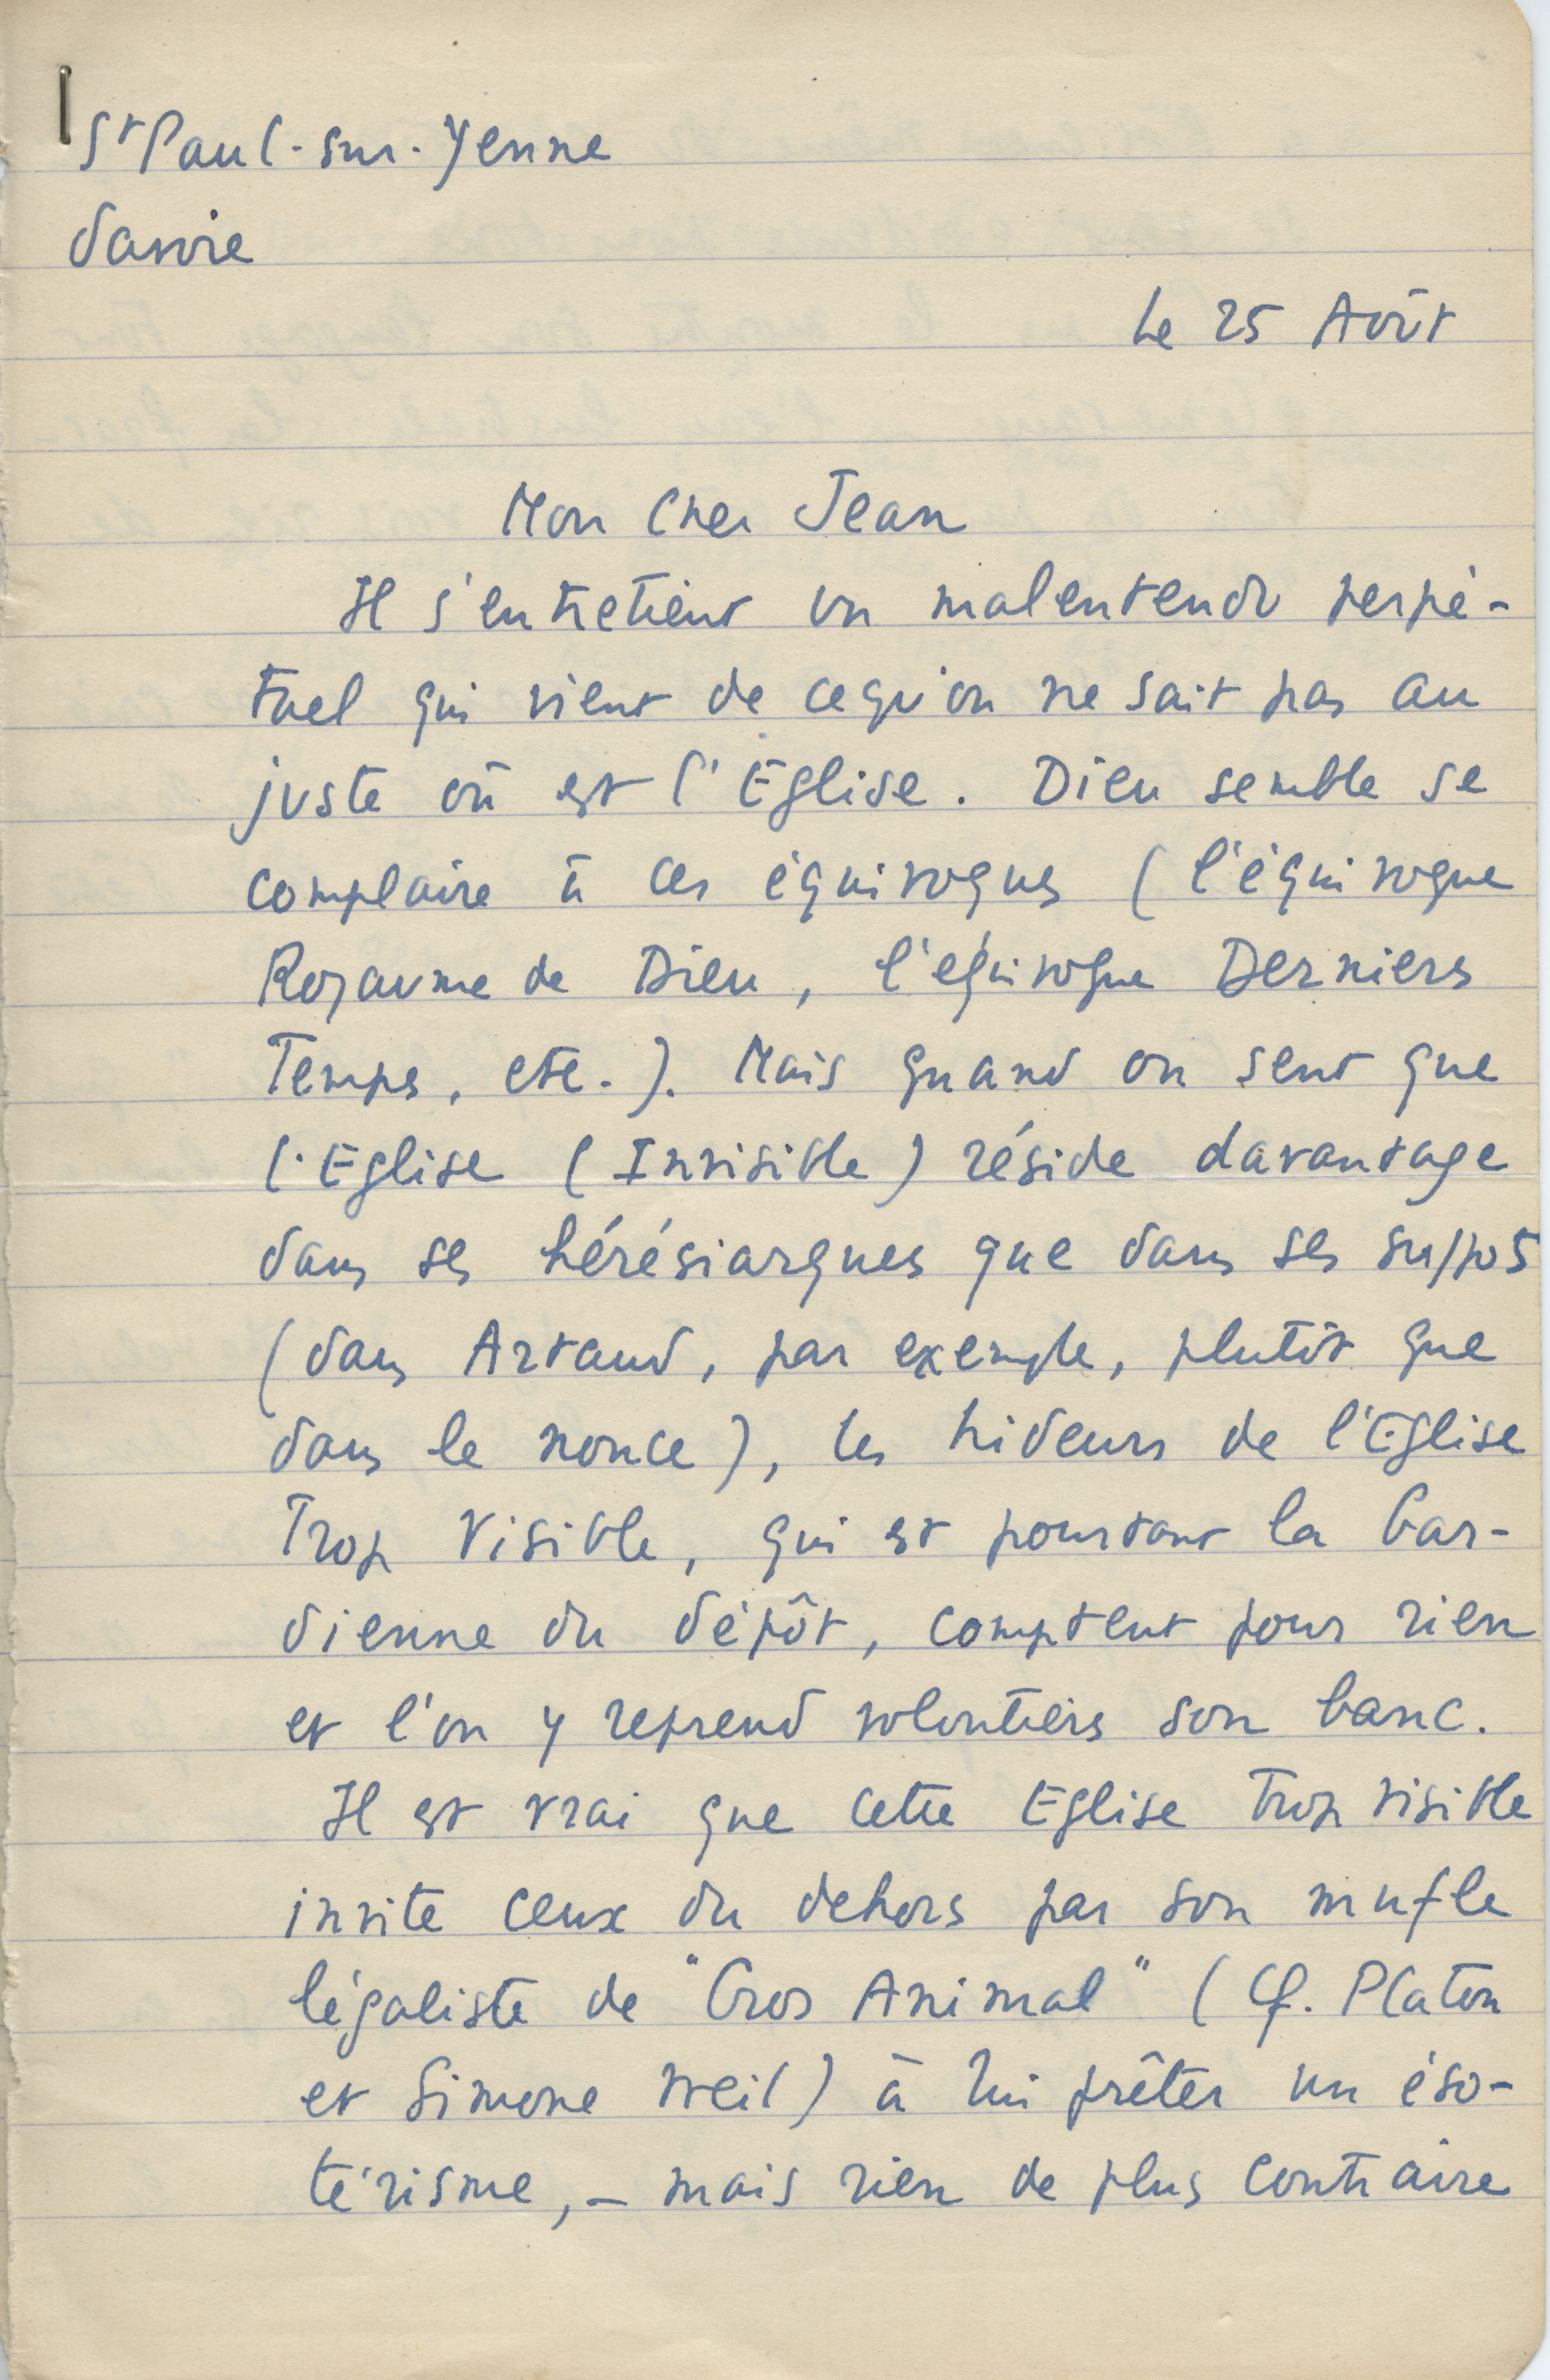 St Paul-sur-Yenne
Savoie
Le 25 Août
Mon Cher Jean
Il s'entretient un malentendu perpé-
tuel qui vient de ce qu'on ne sait pas au
juste où est l'Eglise. Dieu semble se
complaire à ces équivoques (l'équivoque
Royaume de Dieu, l'équivoque Derniers
Temps, etc.). Mais quand on sent que
l'Eglise (Invisible) réside davantage
dans ses hérésiarques que dans ses suppôts
(dans Artaud, par exemple, plutôt que
dans le nonce), les hideurs de l'Eglise
Trop Visible, qui est pourtant la Gar-
dienne du dépôt, comptent pour rien
et l'on y reprend volontiers son banc.
Il est vrai que cette Eglise trop visible
invite ceux du dehors par son mufle
légaliste de "Gros Animal" (Cf. Platon
et Simone Weil) à lui prêter un éso-
térisme, - mais rien de plus contraire